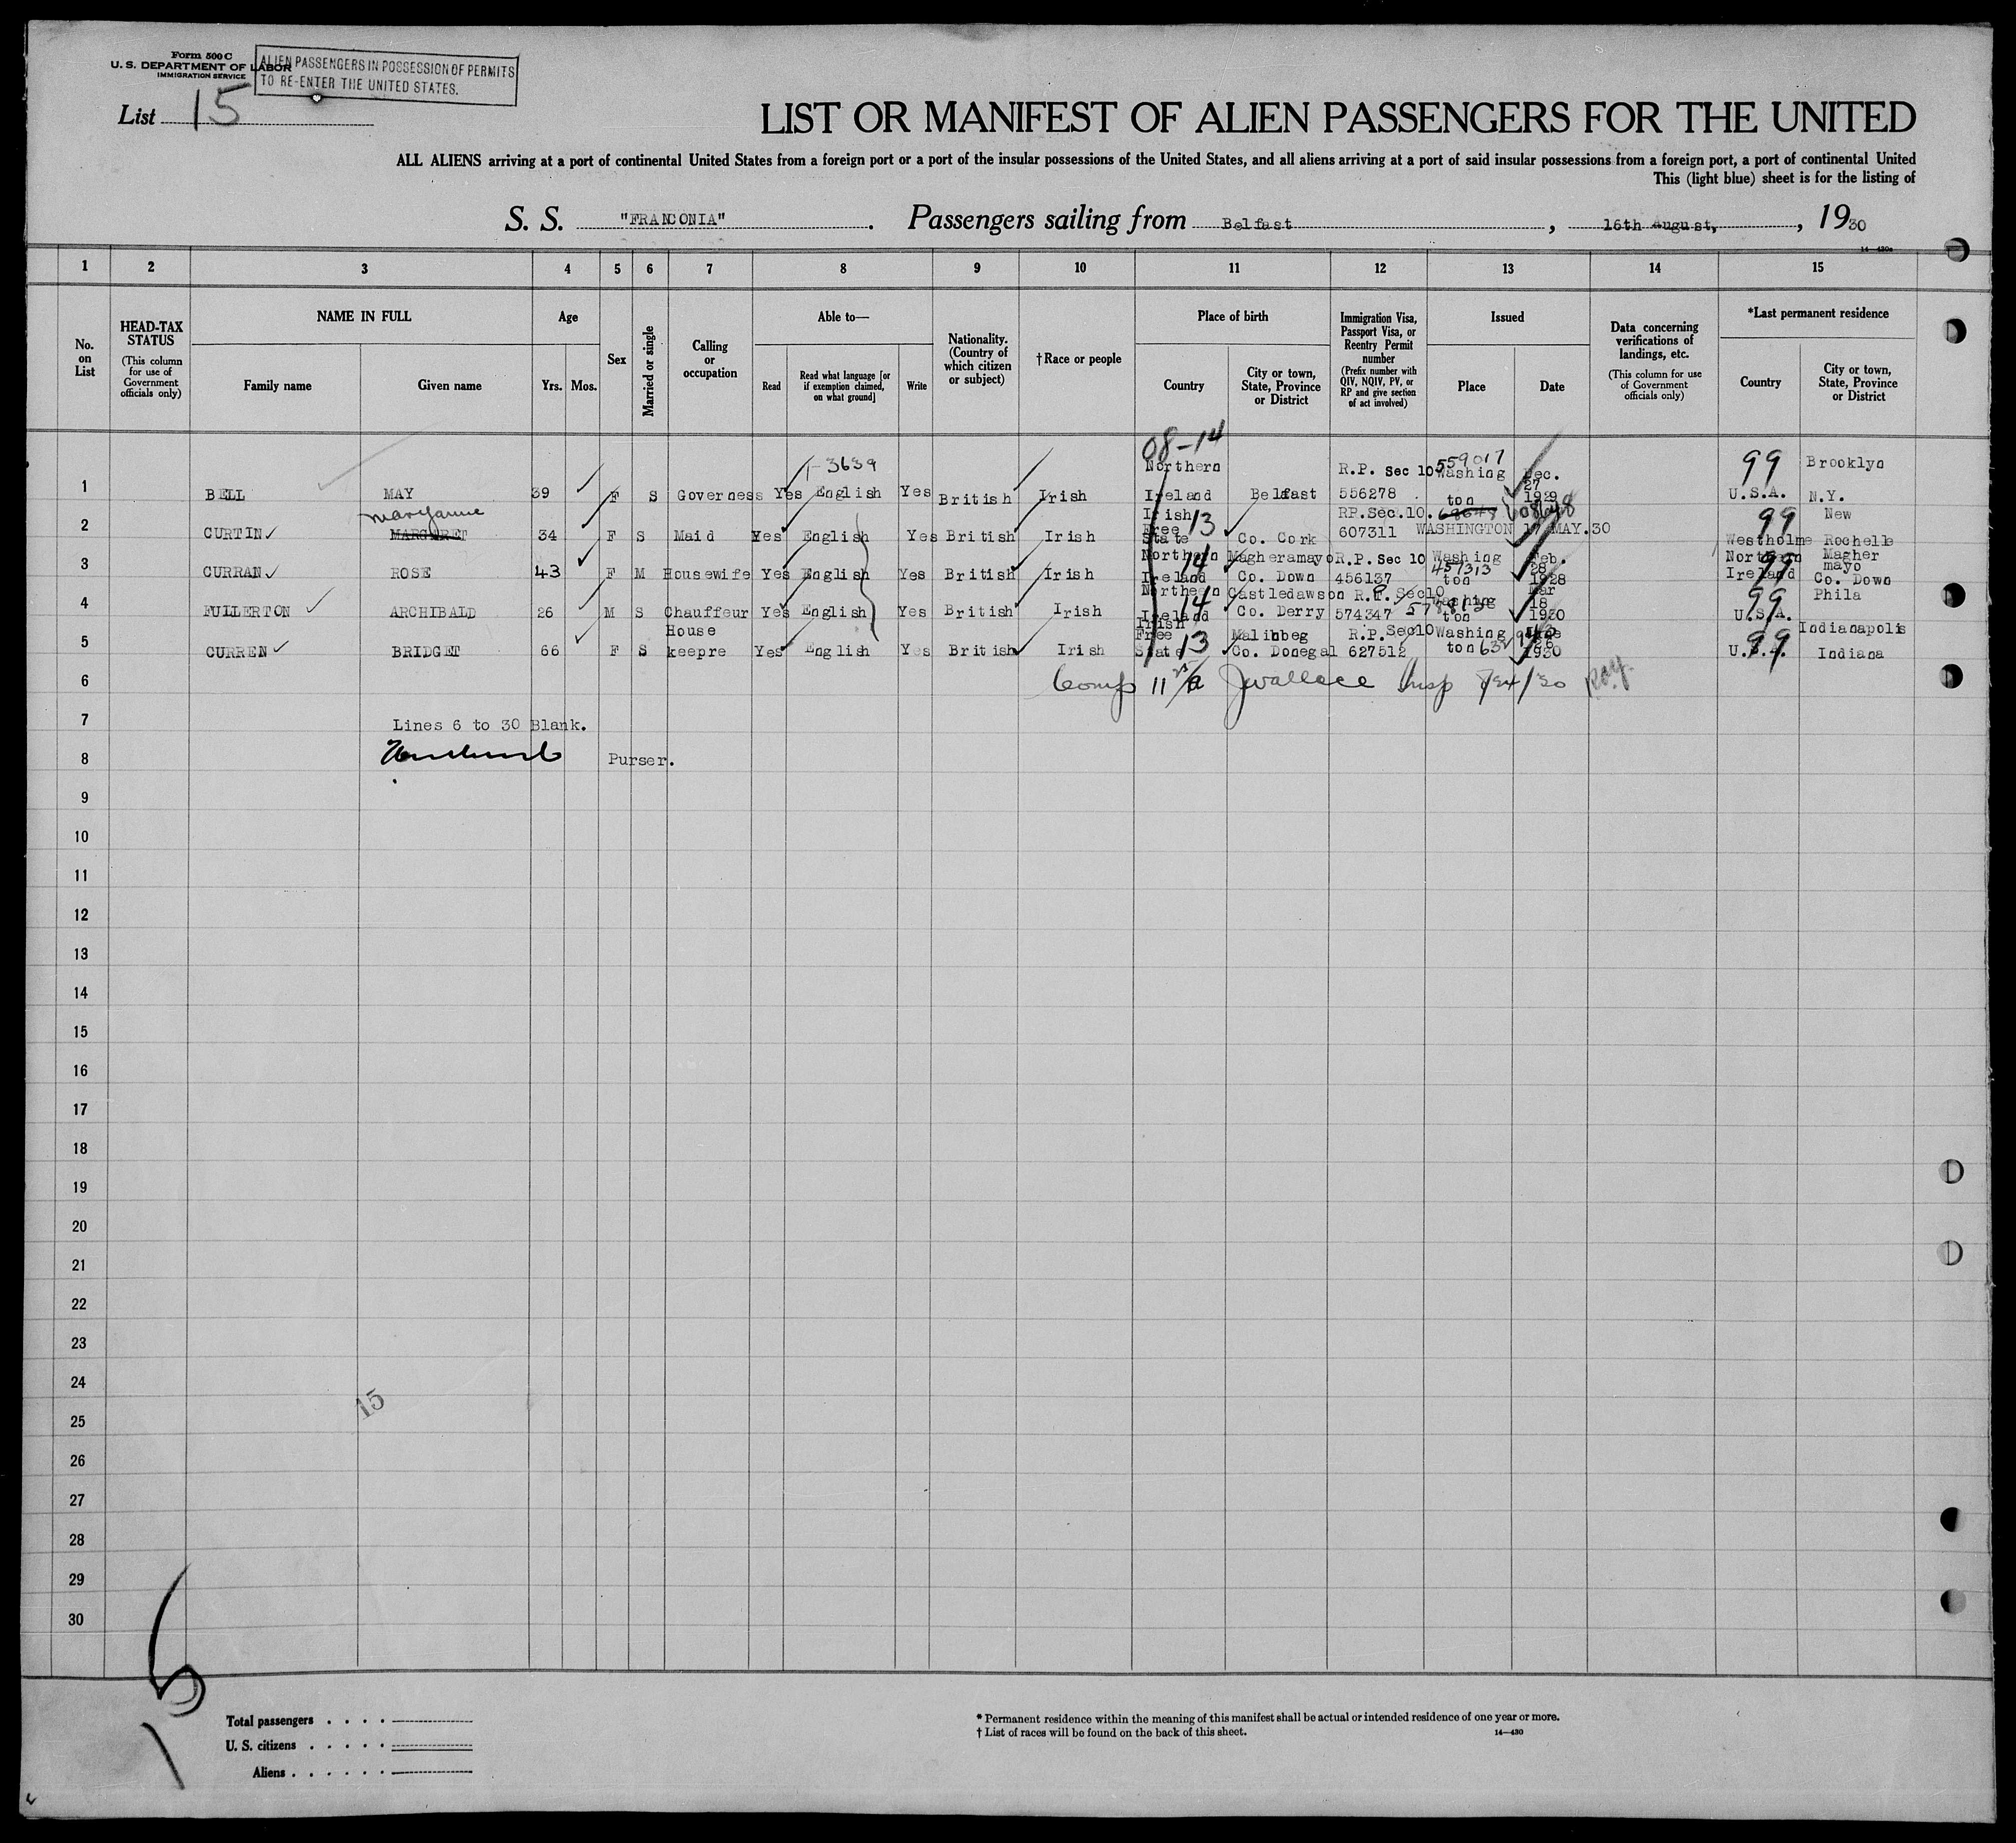 Form 500 C
U. S. DEPARTMENT OF LABOR
IMMIGRATION SERVICE
ALIEN PASSENGERS IN POSSESSION OF PERMITS
TO RE-ENTER THE UNITED STATES.
List 15
LIST OR MANIFEST OF ALIEN PASSENGERS FOR THE UNITED
ALL ALIENS arriving at a port of continental United States from a foreign port or a port of the insular possessions of the United States, and all aliens arriving at a port of said insular possessions from a foreign port, a port of continental United
This (light blue) sheet is for the listing of
S. S. "FRANCONIA". Passengers sailing from Belfast, 16th August, , 1930
14—430a
1 2 3 4 5 6 7 8 9 10 11 12 13 14 15
No. on List
HEAD-TAX STATUS
(This column for use of Government officials only)
NAME IN FULL
Family name Given name
Age
Yrs. Mos.
Sex
Married or single
Calling or occupation
Able to—
Read Read what language [or if exemption claimed, on what ground] Write
Nationality. (Country of which citizen or subject)
†Race or people
Place of birth
Country City or town, State, Province or District
Immigration Visa, Passport Visa, or Reentry Permit number
(Prefix number with QIV, NQIV, PV, or RP and give section of act involved)
Issued
Place Date
Data concerning verifications of landings, etc.
(This column for use of Government officials only)
*Last permanent residence
Country City or town, State, Province or District
08-14
1-3639 Northern R.P. Sec 10 559017 Washing Dec. 27 99 Brooklyn
1 BELL MAY 39 F S Governess Yes English Yes British Irish Ireland Belfast 556278 ton 1929 U.S.A. N.Y.
Maryanne Irish RP.Sec.10. 608648 99 New
2 CURTIN MARGARET 34 F S Maid Yes English Yes British Irish Free State 13 Co. Cork 607311 WASHINGTON 17 MAY.30 Westholme Rochelle
Northern Magheramayo R.P. Sec 10 Washing Feb. 28 Northern Magher mayo
3 CURRAN ROSE 43 F M Housewife Yes English Yes British Irish Ireland 14 Co. Down 456137 457313 ton 1928 Ireland 99 Co. Down
Northern Castledawson R.P. Sec10 Washing Mar 18 99 Phila
4 FULLERTON ARCHIBALD 26 M S Chauffeur Yes English Yes British Irish Ireland 14 Co. Derry 574347 ton 1930 U.S.A.
House Irish Free Malinbeg R.P. Sec10 Washing Indianapolis
5 CURREN BRIDGET 66 F S keepre Yes English Yes British Irish State 13 Co. Donegal 627512 ton 1930 U.S.A. 99 Indiana
6 Comp J Wallace Insp 8/24/30
7 Lines 6 to 30 Blank.
8 Purser.
9
10
11
12
13
14
15
16
17
18
19
20
21
22
23
24
15
25
26
27
28
29
30
15
Total passengers . . . .
U. S. citizens . . . . .
Aliens . . . . . .
* Permanent residence within the meaning of this manifest shall be actual or intended residence of one year or more.
† List of races will be found on the back of this sheet.
14—430